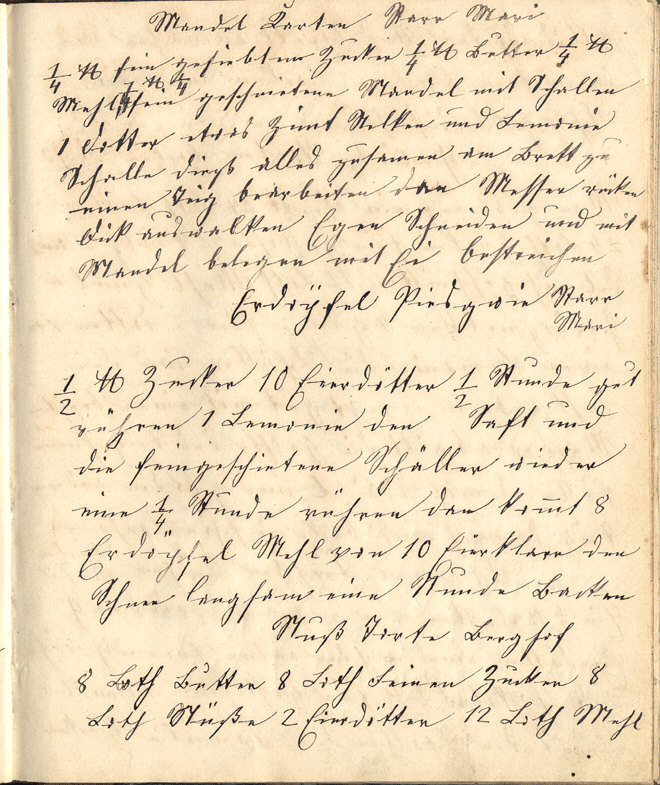 Mandel Karten Starr Mari
1/4 ℔ fein gesiebten Zucker 1/4 ℔ Butter 1/4 ℔
Mehl 1/4 ℔ fein geschnietene Mandel mit Schallen
1 Dotter etwas Zimt Nelken und Lemonie
Schalle dieß alles zusamen am Brett zu
einen Teig bearbeiten dan Messer rücken
Dick auswalken Egen Schneiden und mit
Mandel belegen mit Ei bestreichen
Erdöpfel Piesgwie Starr
Mari
1/2 ℔ Zucker 10 Eierdötter 1/2 Stunde gut
rühren 1 Lemonie den Saft und
die feingeschietene Schäller wieder
eine 1/4 Stunde rühren dan kommt 8
Erdöpfel Mehl von 10 Eierklarr den
Schnee langsam eine Stunde Backen
Nuß Torte Berghof
8 Loth Butter 8 Loth Feinen Zucker 8
Loth Nüße 2 Eierdötter 12 Loth Mehl